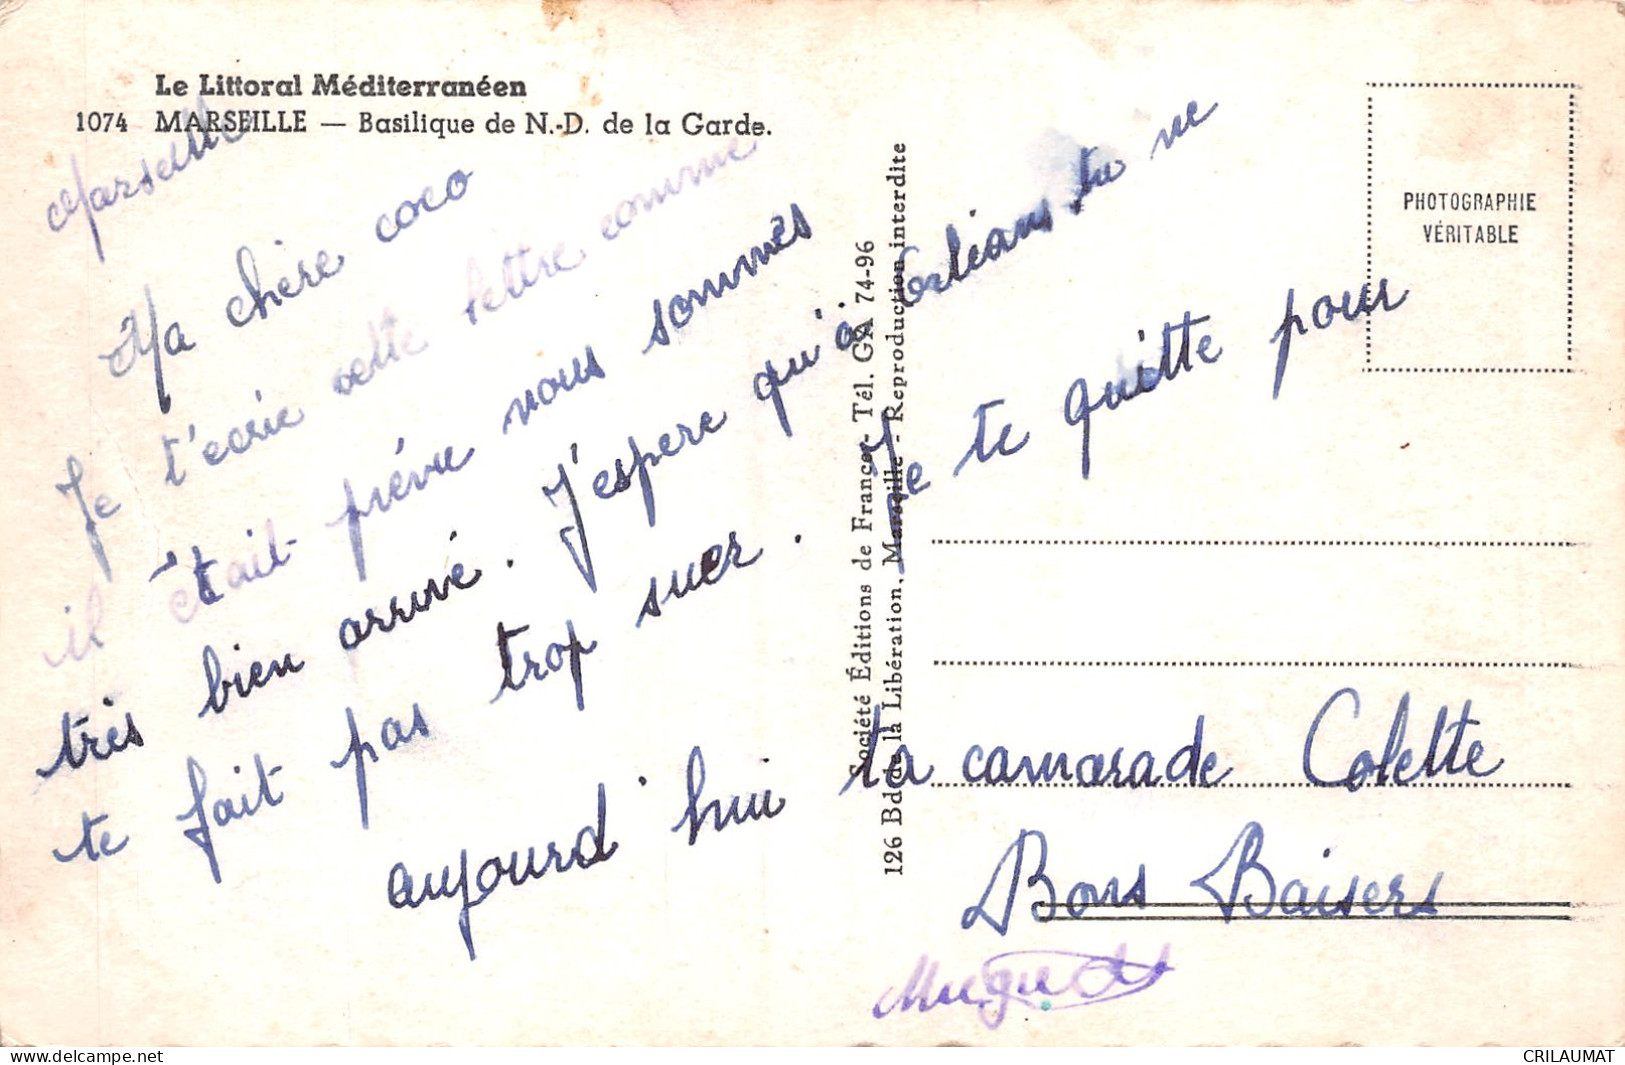 Le Littoral Méditerranéen
1074 MARSEILLE — Basilique de N.-D. de la Garde.
Marseille
Ma chère coco
Je t'ecrie cette lettre comme
il était prévu nous sommes
très bien arrivé. J'espere qu'à Orléans tu ne
te fait pas trop suer. Je te quitte pour
aujourd'hui ta camarade Colette
Bons Baisers
Société Éditions de France - Tél. GA 74-96
126 Bd de la Libération, Marseille - Reproduction interdite
PHOTOGRAPHIE
VÉRITABLE
delcampe.net
CRILAUMAT